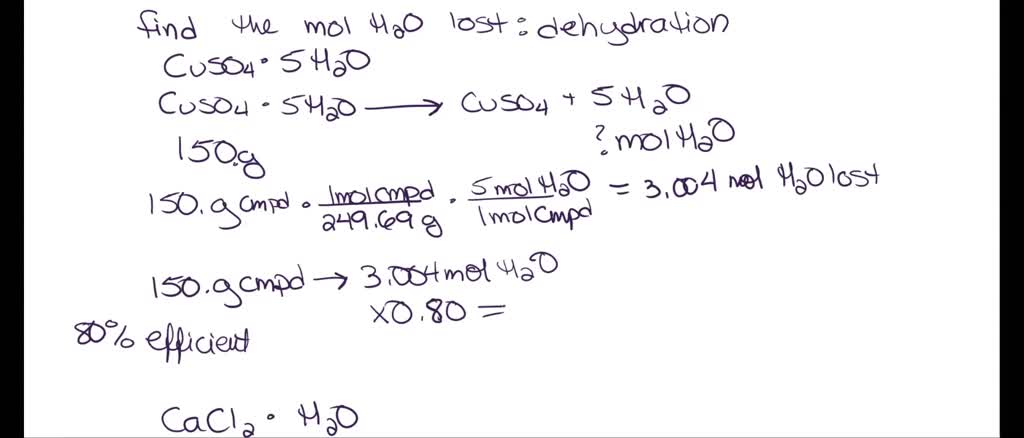 find the mol H₂O lost: dehydration
CuSO₄ · 5H₂O
CuSO₄ · 5H₂O → CuSO₄ + 5H₂O
150.g ? mol H₂O
150. g cmpd · 1mol cmpd / 249.69 g · 5 mol H₂O / 1 mol cmpd = 3.004 mol H₂O lost
150. g cmpd → 3.004 mol H₂O
×0.80 =
80% efficient
CaCl₂ · H₂O